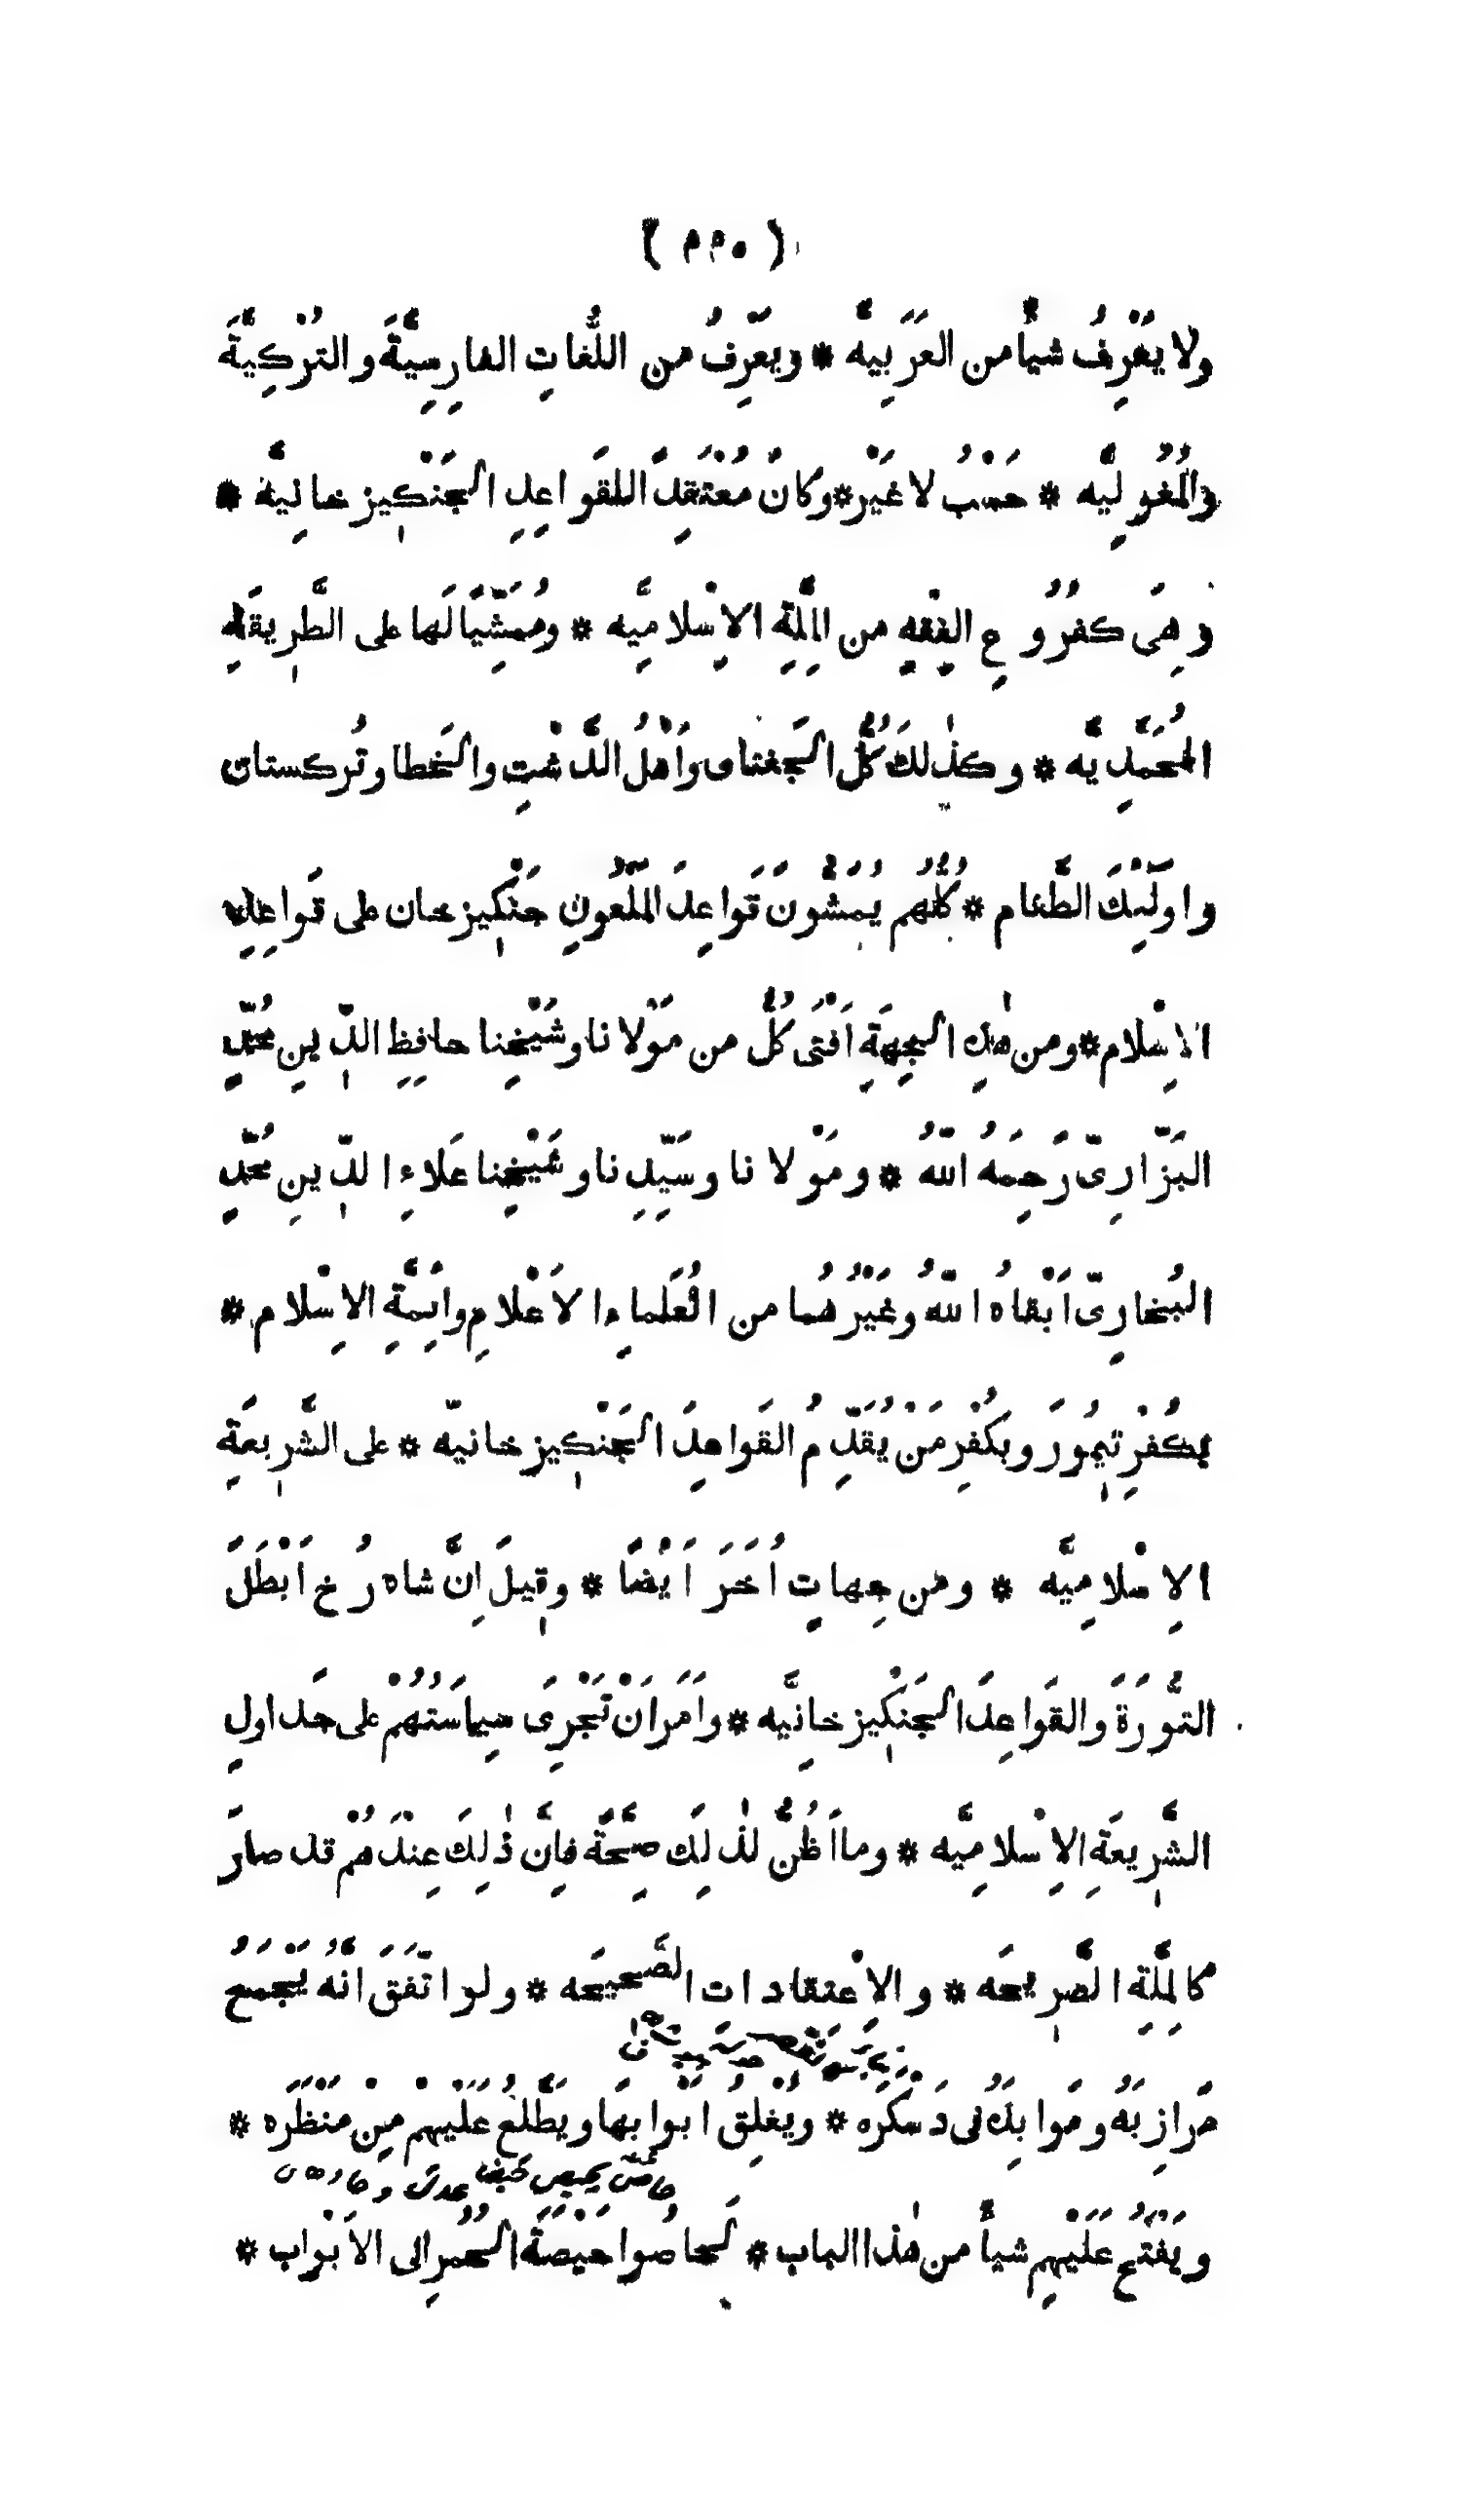 ( ٢٢٥ )
ولا يَعْرِفُ شيأً من العَرَبيَّه * ويَعْرِفُ من اللُّغاتِ الفارِسِيَّةَ والتُرْكِيَّةَ
والمُغُولِيَّه * حَسْبُ لا غَيْر * وكانَ مُعْتَقِدًا للقَواعِدِ الجَنْكِيز خانِيَّه *
وهِيَ كفُرُوعِ الفِقْهِ من المِلَّةِ الاِسْلامِيَّه * ومُمَشِّيًا لَها على الطَّرِيقَةِ
المُحَمَّدِيَّه * وكذٰلكَ كُلُّ الجَغتاى واَهْلُ الدَّشْتِ والخَطا وتُركستان
واولٓئِكَ الطَّغام * كُلُّهم يُمَشُّونَ قَواعِدَ المَلْعُونِ جَنْكِيز خان على قَواعِدِ
الاِسْلام * ومن هٰذِهِ الجِهَةِ اَفْتَى كُلٌّ من مَوْلانا وشَيْخِنا حافِظِ الدّينِ مُحَمَّدٍ
البَزّازِىّ رَحِمَهُ اللّهُ * ومَوْلانا وسَيِّدِنا وشَيْخِنا عَلاءِ الدّينِ مُحَمَّدٍ
البُخارِىّ اَبْقاهُ اللّهُ وغَيْرُهُما من العُلَماءِ الاَعْلامِ وائِمَّةِ الاِسْلام *
بكُفْرِ تيمُورَ وبكُفْرِ مَنْ يُقَدِّمُ القَواعِدَ الجَنْكِيز خانيّه * على الشَّرِيعَةِ
الاِسْلامِيَّه * ومن جِهاتٍ اُخَرَ اَيْضًا * وقِيلَ اِنَّ شاه رُخ اَبْطَلَ
التُّورَةَ والقَواعِدَ الجَنْكِيز خانِيَّه * واَمَرَ اَنْ تَجْرِىَ سِياسَتُهُمْ على جَداوِلِ
الشَّرِيعَةِ الاِسْلامِيَّه * وما اَظُنُّ لذٰلِكَ صِحَّةً فاِنَّ ذٰلِكَ عِنْدَهُمْ قد صارَ
كالمِلَّةِ الصَّرِيحَه * والاِعْتقادات الصَّحيحَه * ولو اتّفَقَ اَنَّهُ يَجْمَعُ
مَرازِبَهُ ومَوابِذَهُ فى دَسْكَرَه * ويُغْلِقُ اَبْوابَها ويَطَّلِعُ عَلَيْهِمْ مِنْ مَنْظَرَه *
ويَفْتَحُ عَلَيْهِم شيأً من هٰذا الباب * لَحاصُوا حَيْصَةَ الحُمُرِ الى الاَبْواب *